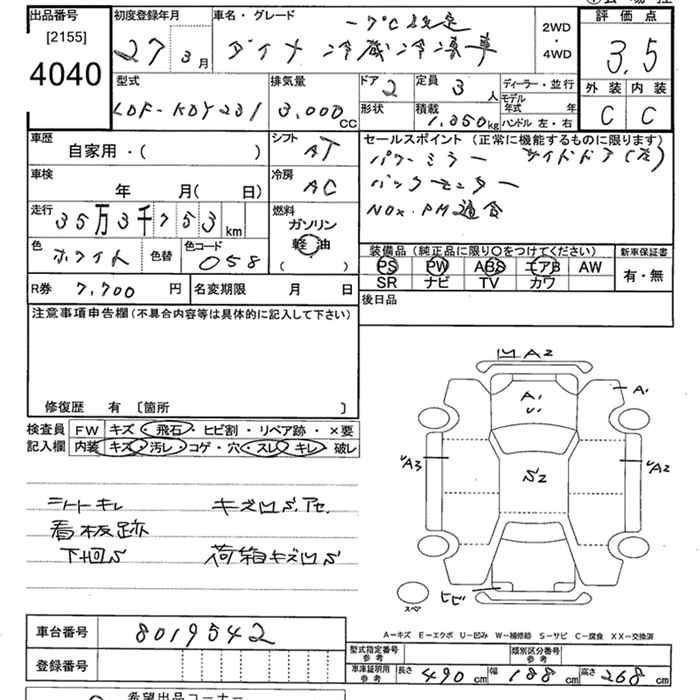 出品番号 初度登録年月 車名・グレード -7℃設定 評価点
[2155] 27 3月 ダイナ 冷蔵冷凍車 2WD・4WD 3.5
4040
型式 排気量 ドア 2 定員 3人 ディーラー・並行 外装 内装
LDF-KDY231 3,000cc 形状 積載 1,350kg モデル年式 年 ハンドル 左・右 C C
車歴 自家用・( ) シフト AT
セールスポイント (正常に機能するものに限ります)
パワーミラー サイドドア(左)
バックモニター
NOx・PM適合
車検 年 月( 日) 冷房 AC
走行 35万3千753km 燃料 ガソリン 軽油 ( )
色 ホワイト 色替 色コード 058
装備品 (純正品に限り○をつけてください) 新車保証書
PS PW ABS エアB AW 有・無
SR ナビ TV カワ
R券 7,700円 名変期限 月 日
後日品
注意事項申告欄 (不具合内容等は具体的に記入して下さい)
修復歴 有 〔箇所 〕
検査員記入欄 FW キズ・飛石・ヒビ割・リペア跡・×要
内装 キズ・汚レ・コゲ・穴・スレ・キレ・破レ
シートキレ キズ凹S.アセ
看板跡
下回S 荷箱キズ凹S
凹A2
A1
A1
U
UA3
S2
UA2
ヒビ
スペア
A-キズ E-エクボ U-凹み W-補修跡 S-サビ C-腐食 XX-交換済
車台番号 8019542
登録番号
型式指定番号 参考 類別区分番号 参考
車庫証明用 参考 長さ 490cm 幅 188cm 高さ 268cm
希望出品コーナー